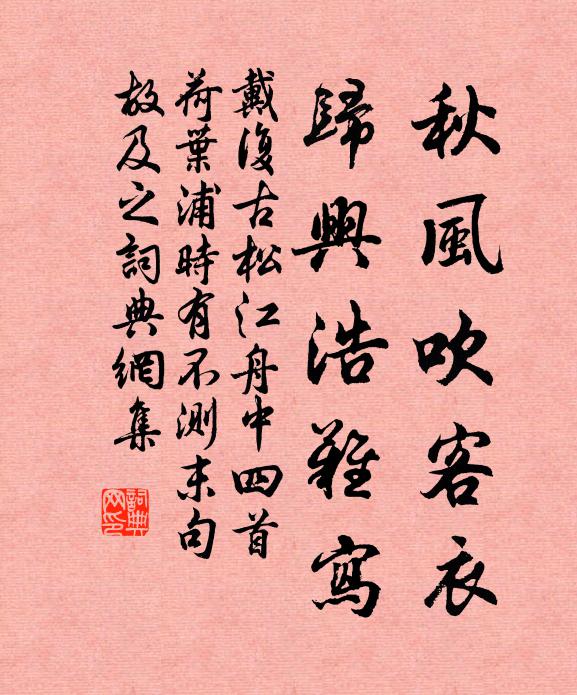 秋風吹客衣
歸興浩難寫
戴復古松江舟中四首
荷葉浦時有不測末句
故及之詞典網集
詞典
网印